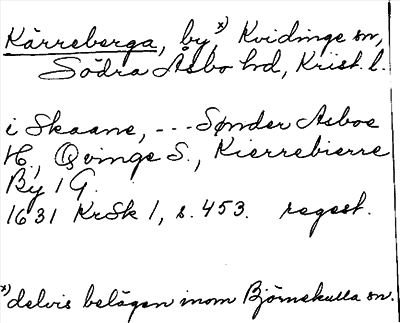 Kärreberga, by,ˣ⁾ Kvidinge sn,
Södra Åsbo hd, Krist. l.
i Skaane, --- Sønder Asboe
H., Qvinge S., Kierrebierre
By 1 G.
1631 KrSk 1, s. 453. regest.
ˣ⁾delvis belägen inom Björnekulla sn.